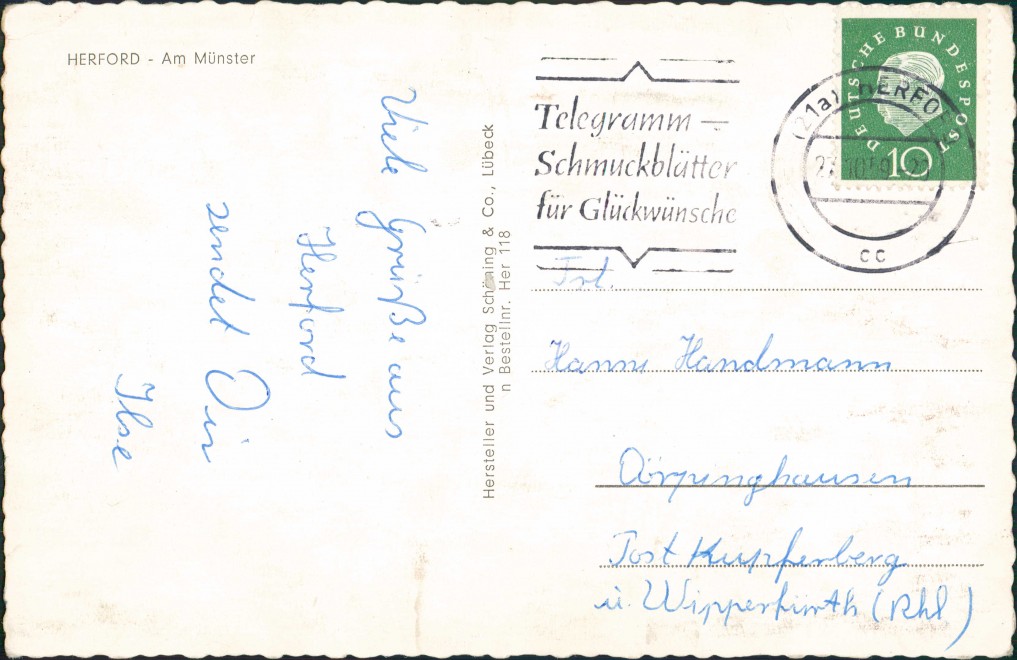 HERFORD - Am Münster
Viele Grüße aus
Herford
sendet Dir
Ilse
Hersteller und Verlag Schöning & Co., Lübeck
n Bestellnr. Her 118
Telegramm —
Schmuckblätter
für Glückwünsche
DEUTSCHE BUNDESPOST
10
(21a) HERFORD
cc
Frl.
Hanni Handmann
Dörpinghausen
Post Kupferberg
ü. Wipperfürth (Rhl)